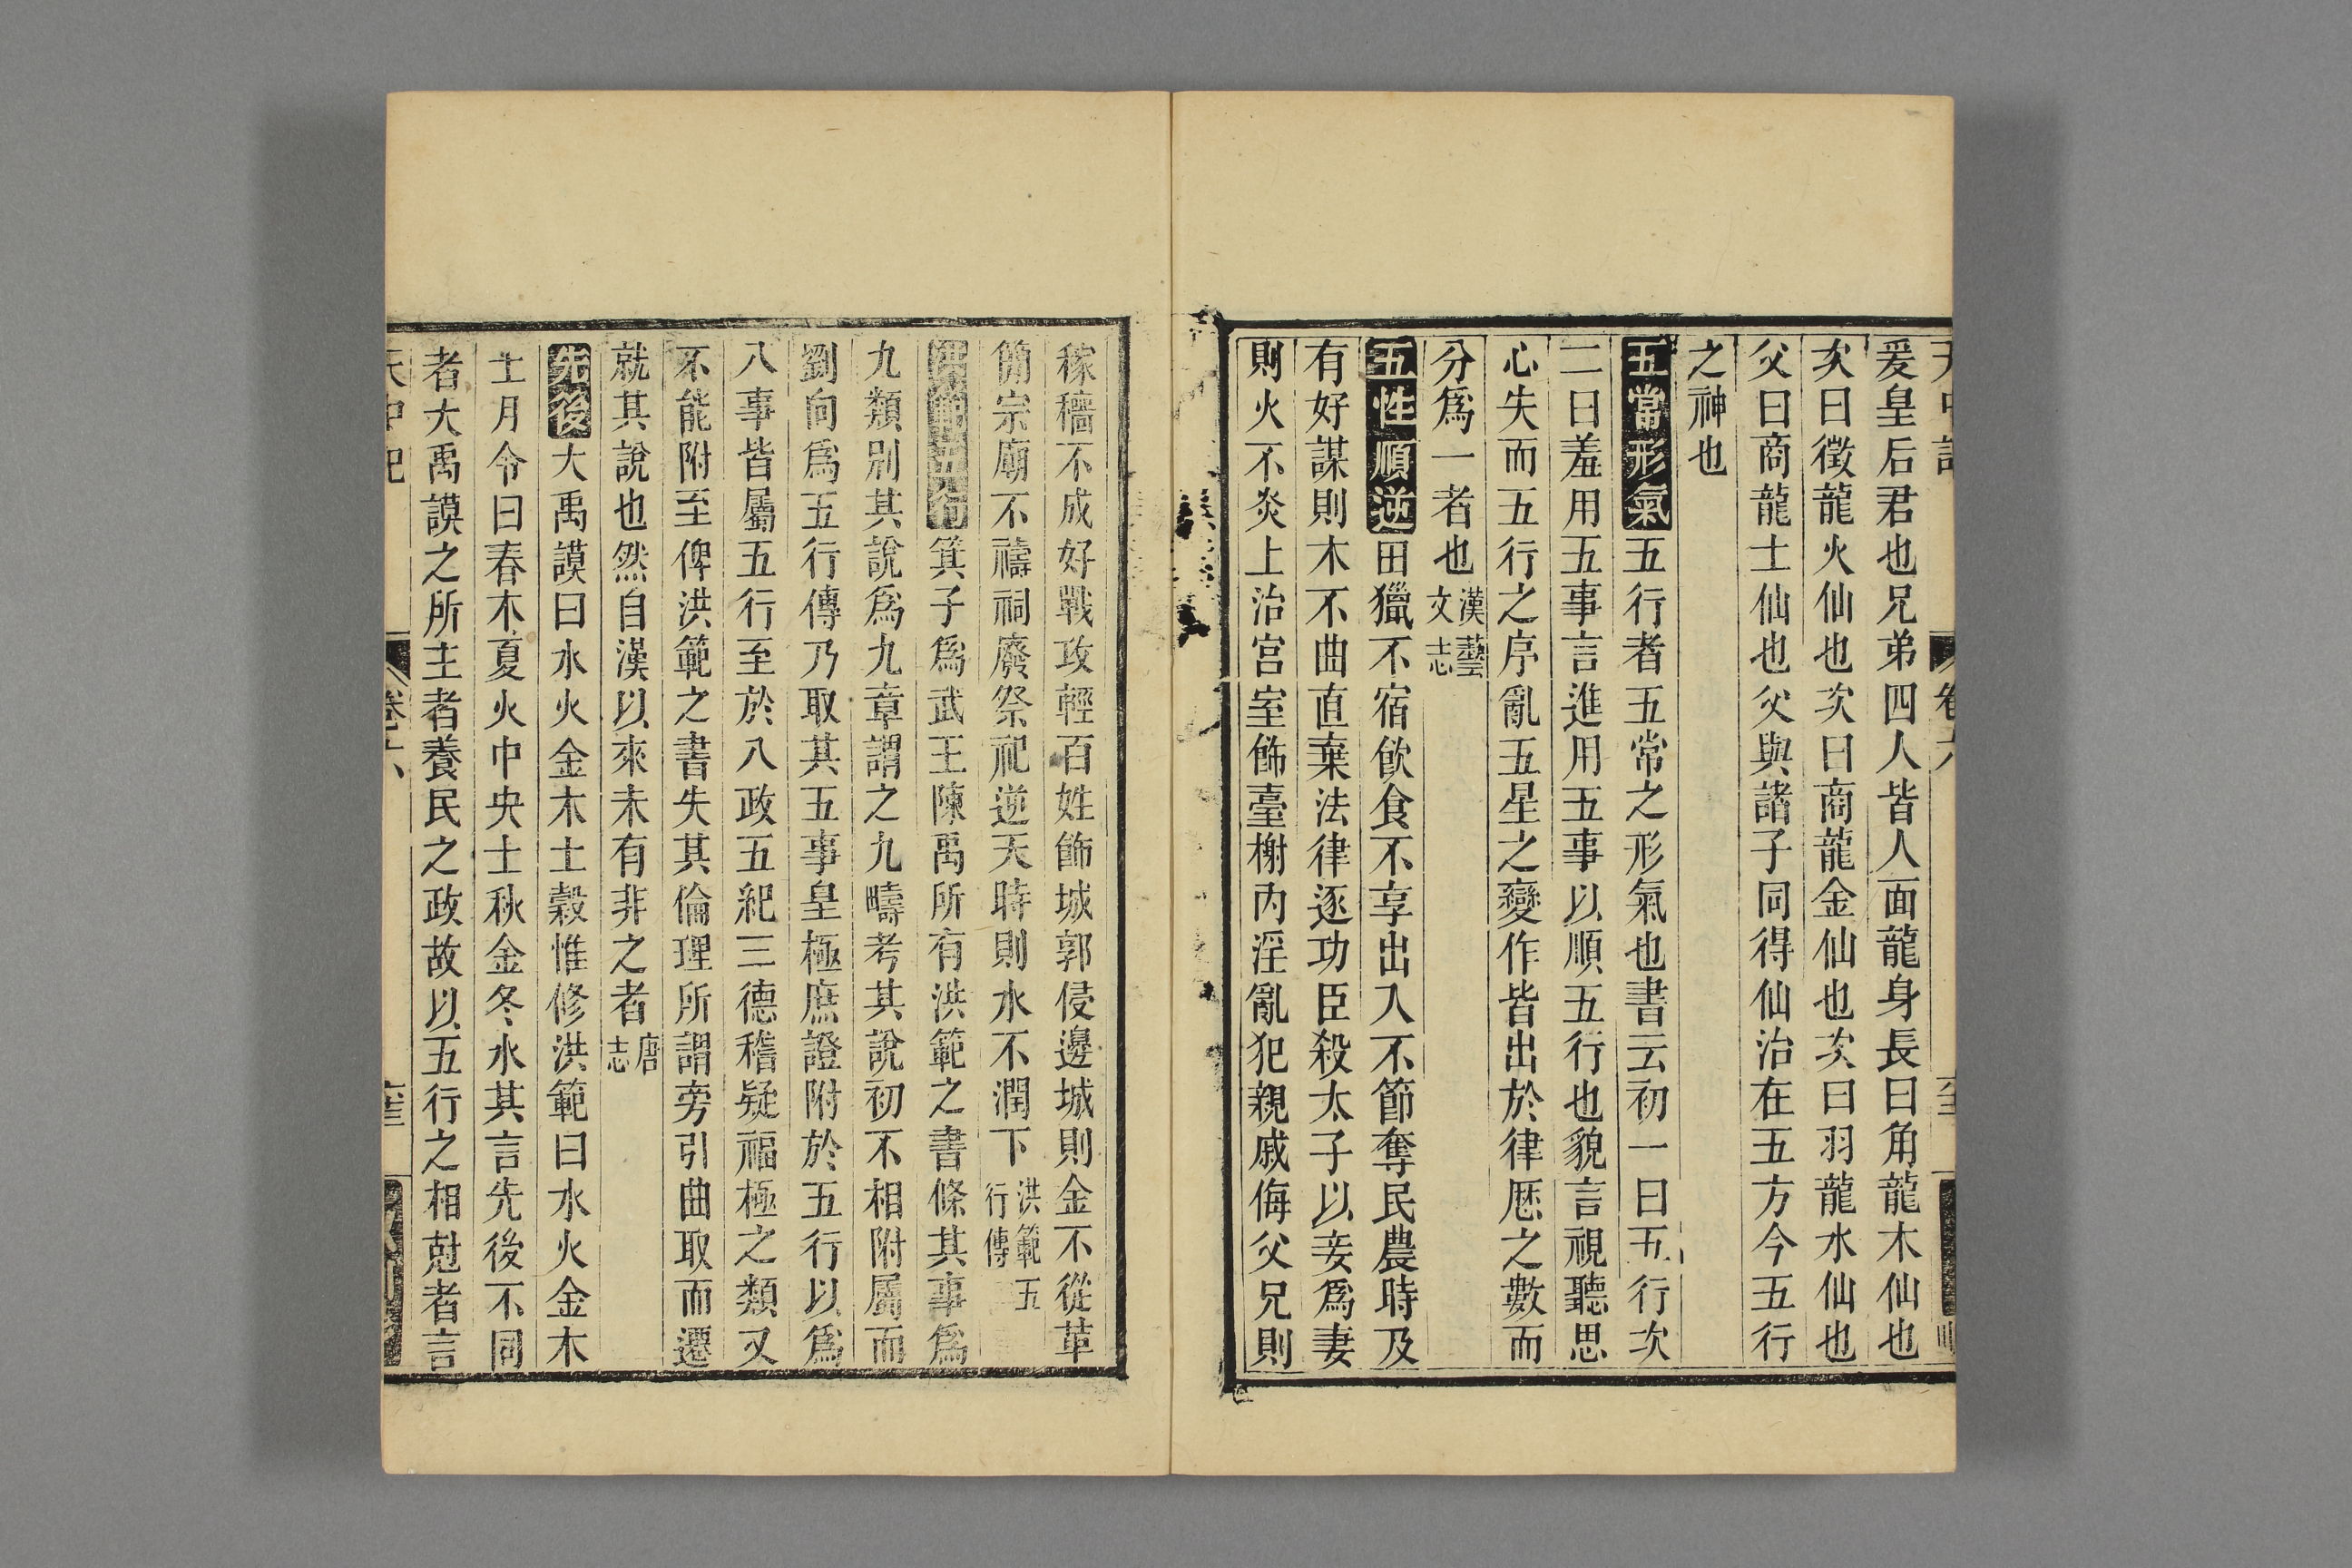 爰皇后君也兄弟四人皆人面龍身長曰角龍木仙也
次曰徵龍火仙也次曰商龍金仙也次曰羽龍水仙也
父曰商龍士仙也父與諸子同得仙治在五方今五行
之神也
五常形氣五行者五常之形氣也書云初一曰五行次
二曰羞用五事言進用五事以順五行也貌言視聽思
心失而五行之序亂五星之變作皆出於律厯之數而
分爲一者也漢藝文志
五性順逆田獵不宿飲食不享出入不節奪民農時及
有好謀則木不曲直棄法律逐功臣殺太子以妾爲妻
則火不炎上治宮室飾臺榭內淫亂犯親戚侮父兄則
稼穡不成好戰攻輕百姓飾城郭侵邊城則金不從革
簡宗廟不禱祠廢祭祀逆天時則水不潤下洪範五行傳
洪範五行箕子爲武王陳禹所有洪範之書條其事爲
九類别其說爲九章謂之九疇考其說初不相附屬而
劉向爲五行傳乃取其五事皇極庶證附於五行以爲
八事皆屬五行至於八政五紀三德稽疑福極之類又
不能附至俾洪範之書失其倫理所謂旁引曲取而遷
就其說也然自漢以來未有非之者唐志
先後大禹謨曰水火金木土穀惟修洪範曰水火金木
土月令曰春木夏火中央土秋金冬水其言先後不同
者大禹謨之所主者養民之政故以五行之相尅者言